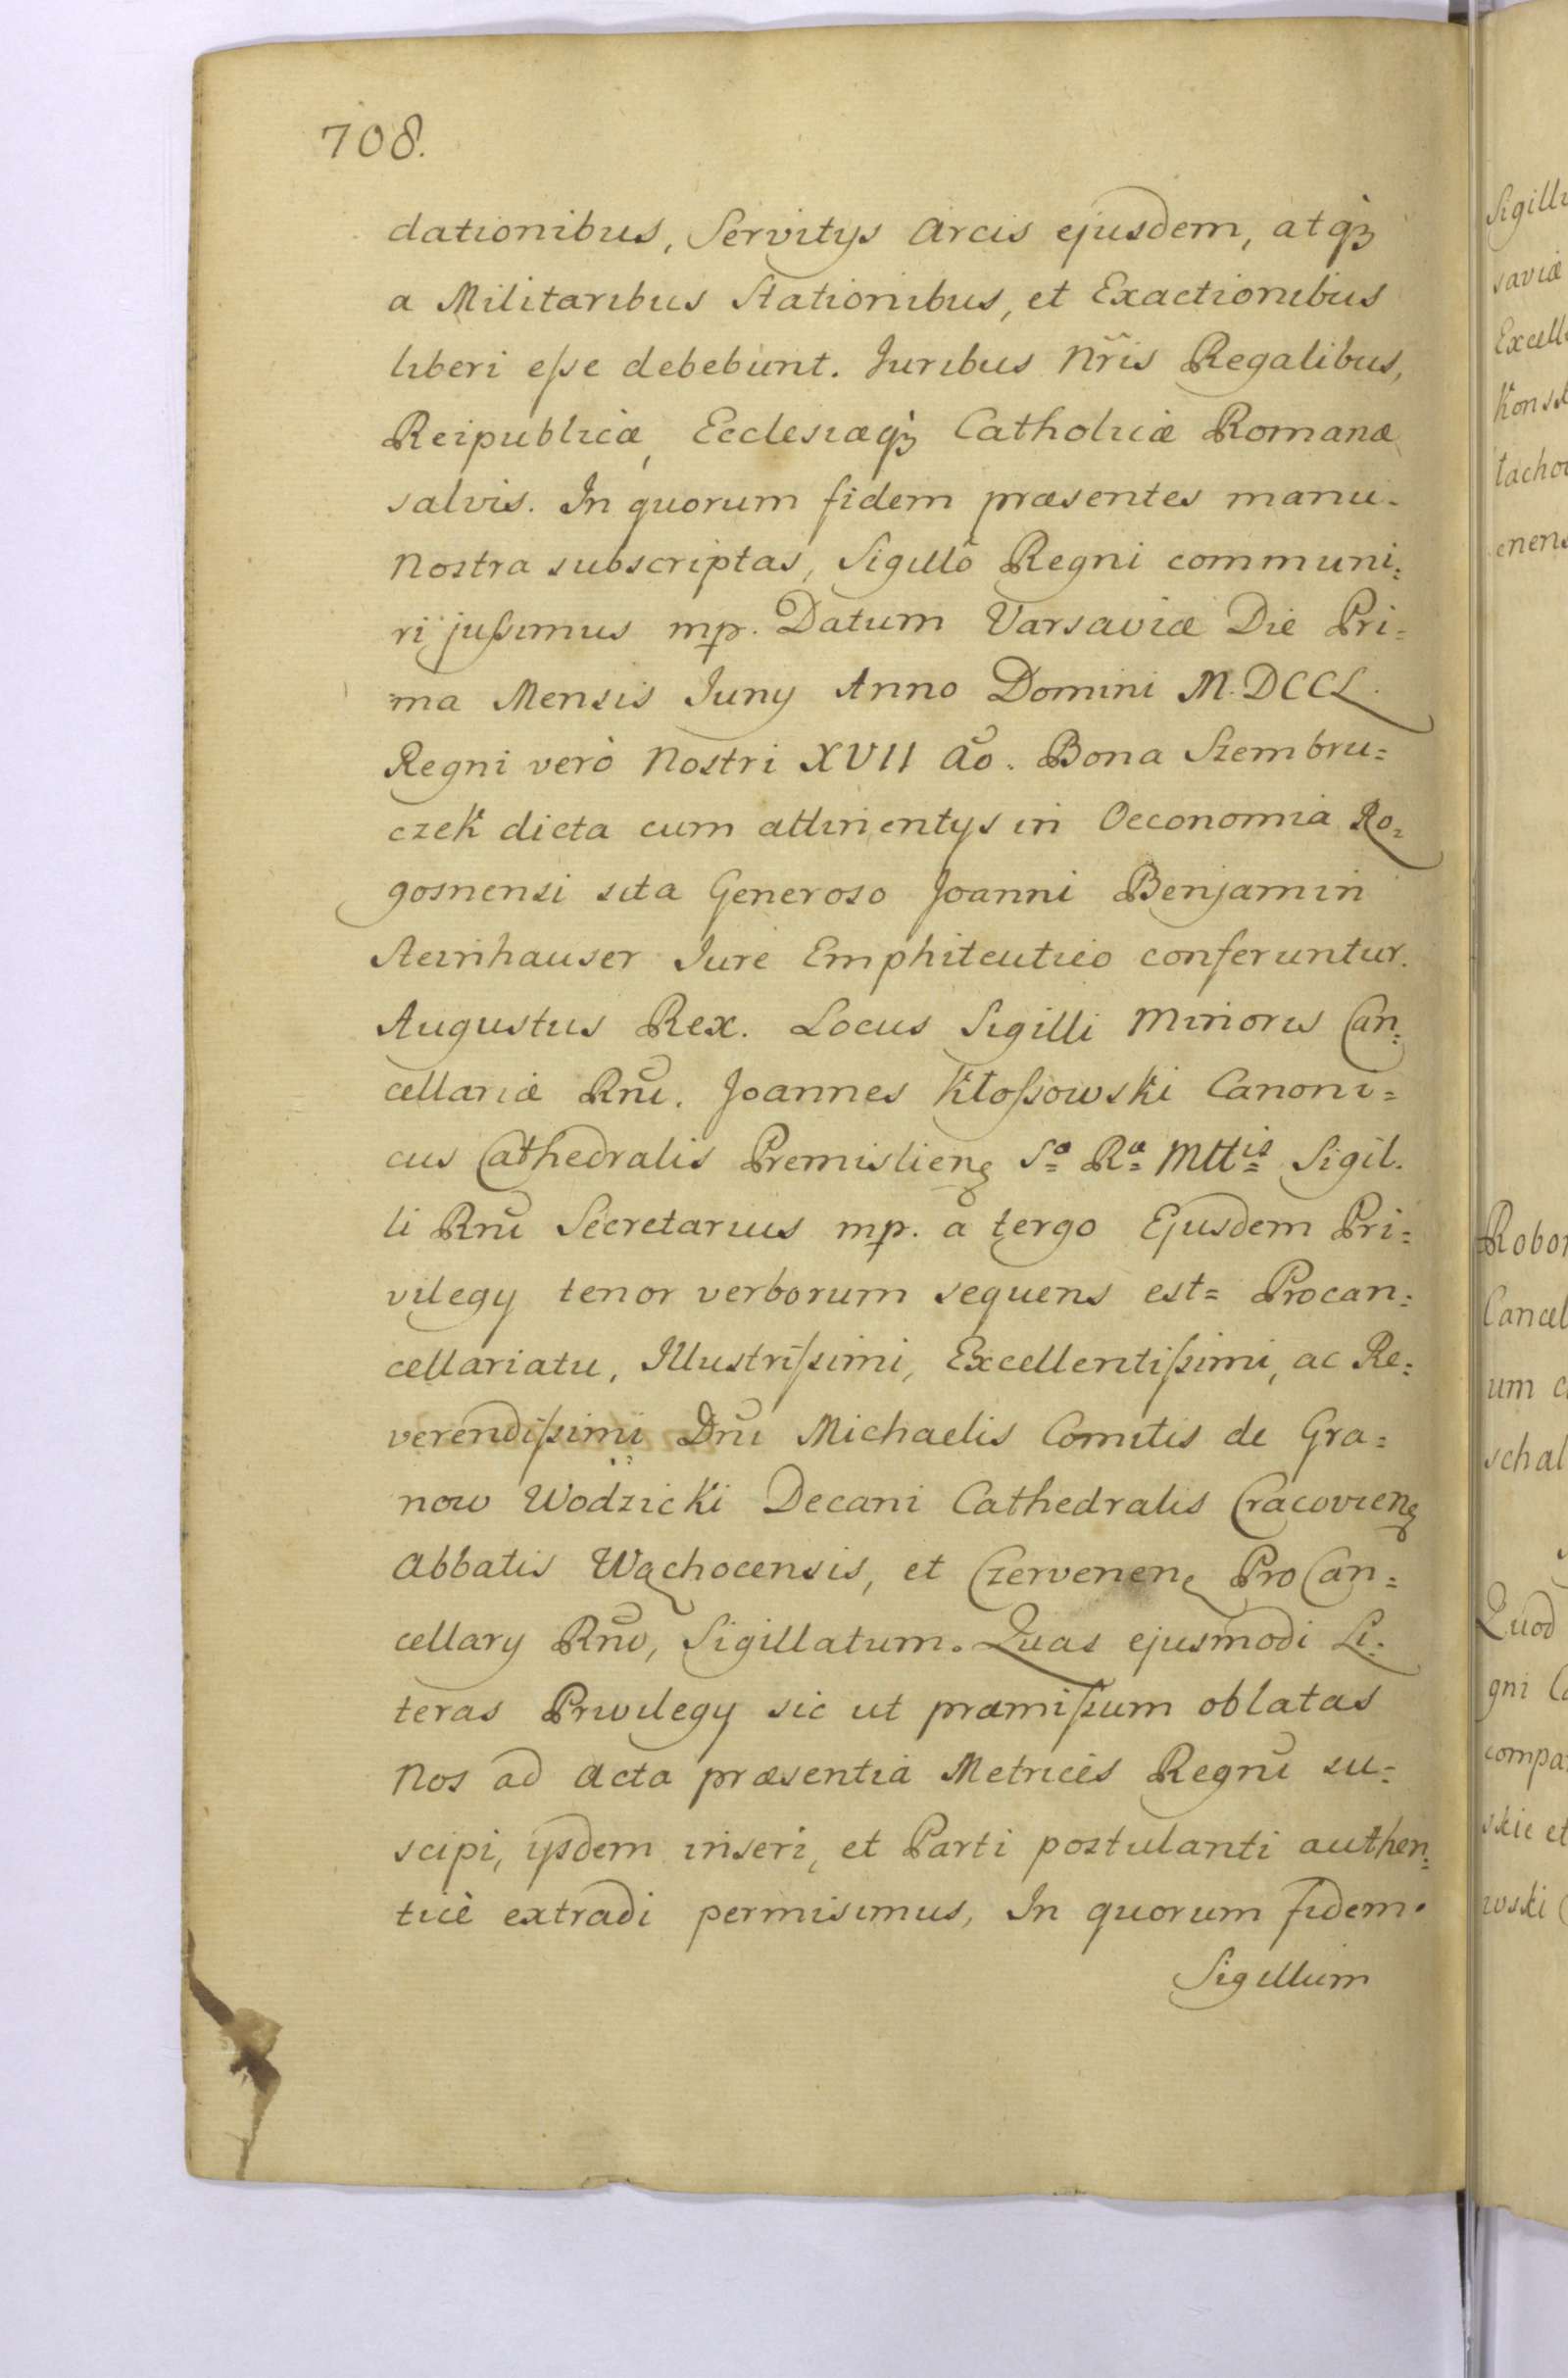 708.
dationibus, Servitys Arcis ejusdem, atq́ꝫ
a Militaribus Stationibus, et Exactionibus
liberi eſse debebunt. Juribus Nr̃is Regalibus,
Reipublicæ, Ecclesiæq́ꝫ Catholicæ Romanæ
salvis. In quorum fidem præsentes manu
Nostra subscriptas, Sigillô Regni communi:
ri juſsimus mp. Datum Varsaviæ Die Pri:
ma Mensis Juny Anno Domini M.DCCL.
Regni verò Nostri XVII aõ. Bona Szembru:
czek dicta cum attinentys in Oeconomia Ro:
gosnensi sita Generoso Joanni Benjamin
Steinhauser Jure Emphiteutico conferuntur.
Augustus Rex. Locus Sigilli Minoris Can:
cellariæ Rñi. Joannes Kłoſsowski Canoni:
cus Cathedralis Premislieng Sª Rª Mttis Sigil.
li Rñi Secretarius mp. â tergo Ejusdem Pri:
vilegy tenor verborum sequens est= Procan:
cellariatu, Illustriſsimi, Excellentiſsimi, ac Re:
verendiſsimi Dñi Michaelis Comitis de Gra:
now Wodzicki Decani Cathedralis Cracovieng
Abbatis Wąchocensis, et Czerveneng ProCan:
cellary Rñi, Sigillatum. Quas ejusmodi Li:
teras Privilegy sic ut præmiſsum oblatas
Nos ad Acta præsentia Metrices Regni su:
scipi, ysdem inseri, et Parti postulanti authen:
ticè extradi permisimus, In quorum fidem.
Sigillum
Sigillu
saviæ
Excell
tacho
enens
Robor
Cancel
um
schal
Quod
gni
compa
skie et
wski